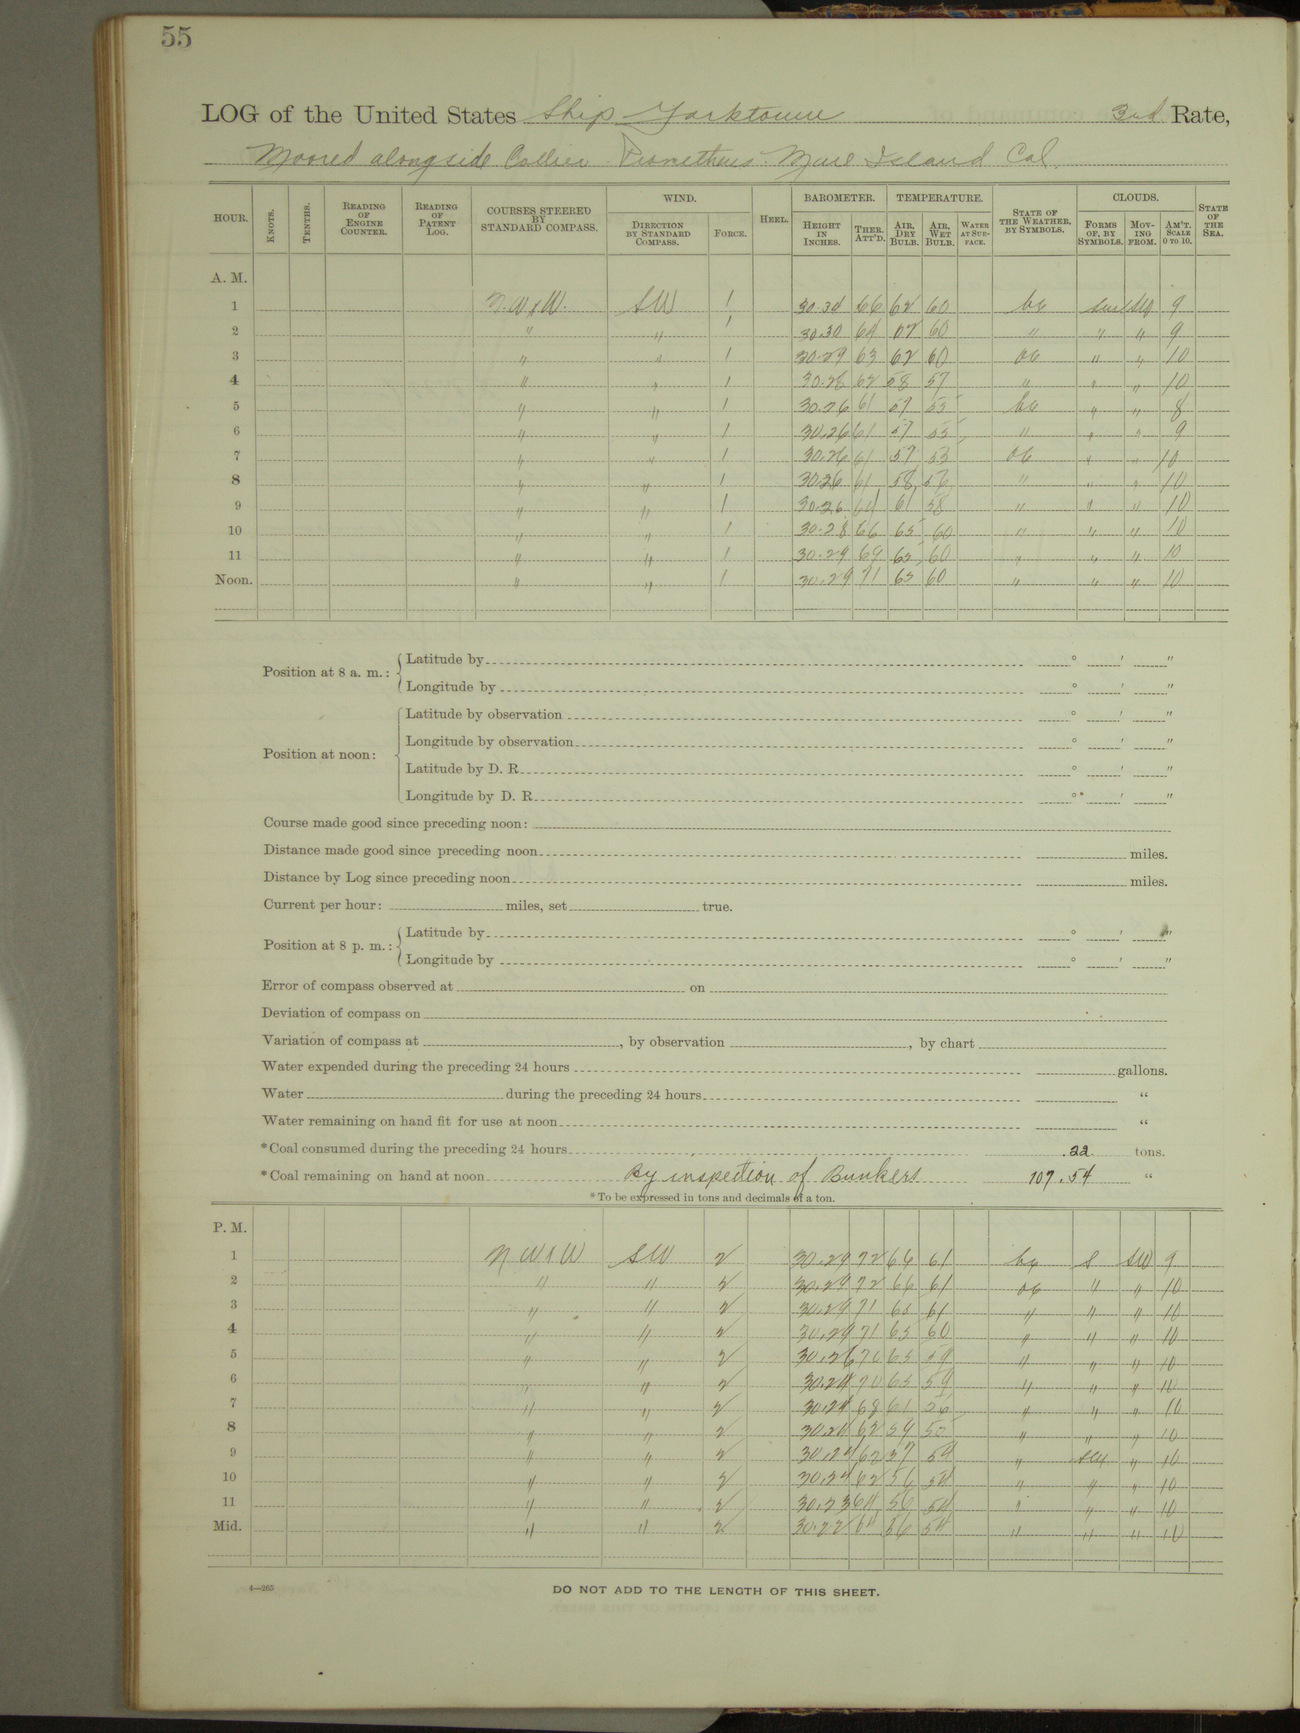 55
LOG of the United States Ship Yorktown 3rd Rate,
Moored alongside Collier Prometheus Mare Island Cal.
HOUR. KNOTS. TENTHS. READING OF ENGINE COUNTER. READING OF PATENT LOG. COURSES STEERED BY STANDARD COMPASS. WIND. DIRECTION BY STANDARD COMPASS. FORCE. HEEL. BAROMETER. HEIGHT IN INCHES. THER. ATT'D. TEMPERATURE. AIR, DRY BULB. AIR, WET BULB. WATER AT SURFACE. STATE OF THE WEATHER, BY SYMBOLS. CLOUDS. FORMS OF, BY SYMBOLS. MOVING FROM. AM'T. SCALE 0 TO 10. STATE OF THE SEA.
A. M.
1 N.W x W. SW 1 30.30 66 62 60 bc SW 9
2 " " 1 30.30 64 62 60 " " " 9
3 " " 1 30.29 63 62 60 oc " " 10
4 " " 1 30.28 62 58 57 " " " 10
5 " " 1 30.26 61 57 55 bc " " 8
6 " " 1 30.26 61 57 55 " " " 9
7 " " 1 30.26 61 57 53 oc " " 10
8 " " 1 30.26 61 58 56 " " " 10
9 " " 1 30.26 64 61 58 " " " 10
10 " " 1 30.28 66 65 60 " " " 10
11 " " 1 30.29 69 65 60 " " " 10
Noon. " " 1 30.29 71 65 60 " " " 10
Position at 8 a. m.: Latitude by ° ′ ″
Longitude by ° ′ ″
Position at noon: Latitude by observation ° ′ ″
Longitude by observation ° ′ ″
Latitude by D. R. ° ′ ″
Longitude by D. R. ° ′ ″
Course made good since preceding noon:
Distance made good since preceding noon miles.
Distance by Log since preceding noon miles.
Current per hour: miles, set true.
Position at 8 p. m.: Latitude by ° ′ ″
Longitude by ° ′ ″
Error of compass observed at on
Deviation of compass on
Variation of compass at , by observation , by chart
Water expended during the preceding 24 hours gallons.
Water during the preceding 24 hours "
Water remaining on hand fit for use at noon "
*Coal consumed during the preceding 24 hours .22 tons.
*Coal remaining on hand at noon By inspection of Bunkers 107.54 "
*To be expressed in tons and decimals of a ton.
P. M.
1 N W x W SW 2 30.29 72 66 61 bc S SW 9
2 " " 2 30.29 72 66 61 oc " " 10
3 " " 2 30.29 71 65 61 " " " 10
4 " " 2 30.29 71 65 60 " " " 10
5 " " 2 30.26 70 65 59 " " " 10
6 " " 2 30.24 70 65 59 " " " 10
7 " " 2 30.24 68 61 56 " " " 10
8 " " 2 30.24 62 59 55 " " " 10
9 " " 2 30.24 62 57 54 " " 10
10 " " 2 30.24 62 56 54 " " " 10
11 " " 2 30.23 64 56 54 " " " 10
Mid. " " 2 30.22 64 56 54 " " " 10
4—265
DO NOT ADD TO THE LENGTH OF THIS SHEET.